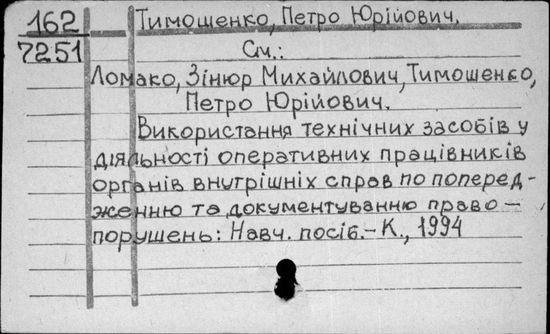 162 Тимошенко, Петро Юрійович.
7251 См.:
Ломако, Зінюр Михайлович, Тимошенко,
Петро Юрійович.
Використання технічних засобів у
діяльності оперативних працівників
органів внутрішніх справ по поперед-
женню та документуванню право-
порушень: Навч. посіб. - К., 1994